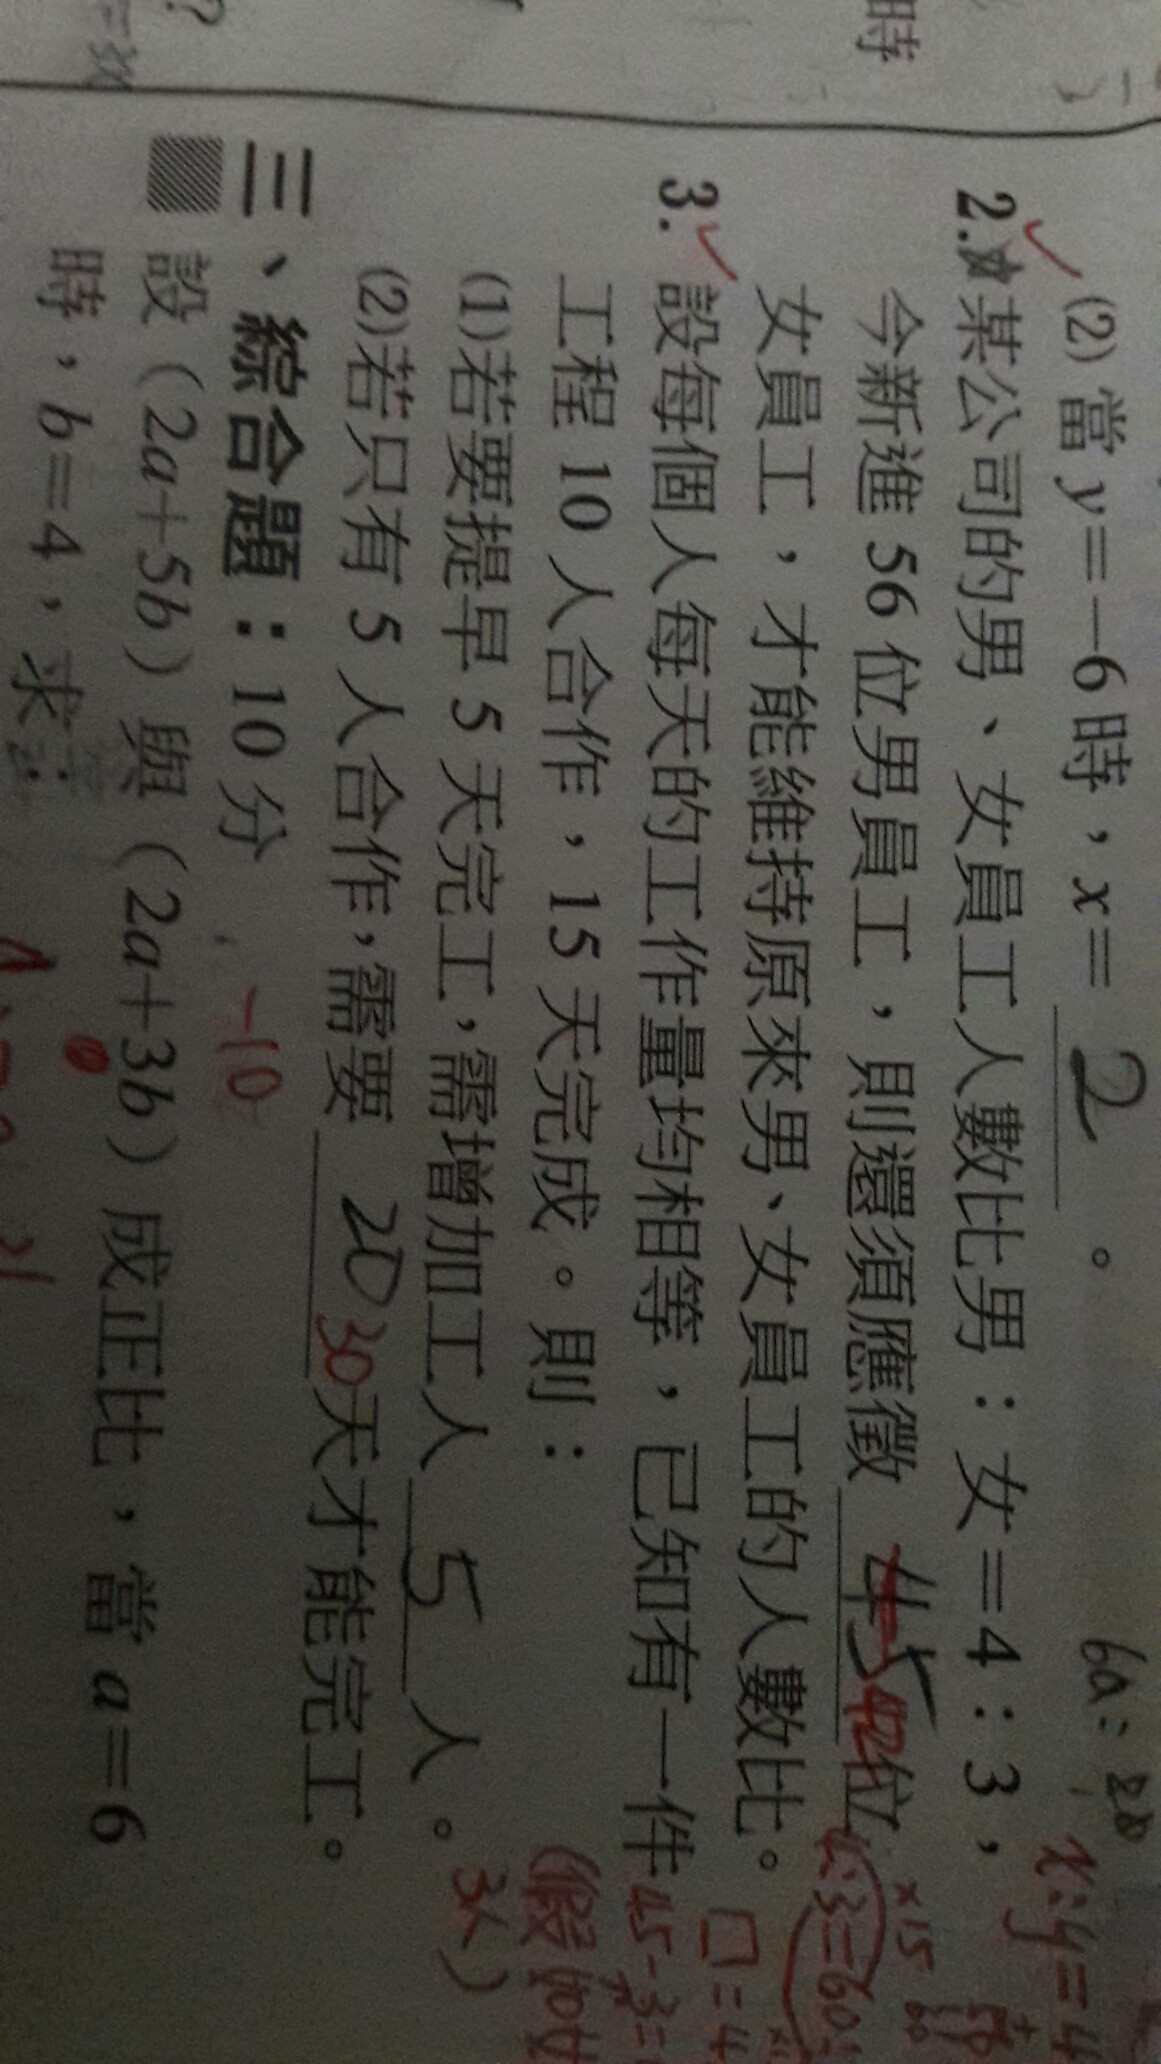 時
(2)當 y=-6 時，x= 2 。
2.某公司的男、女員工人數比男：女=4：3，
今新進 56 位男員工，則還須應徵 45 42 位
女員工，才能維持原來男、女員工的人數比。
3.設每個人每天的工作量均相等，已知有一件
工程 10 人合作，15 天完成。則：
(1)若要提早 5 天完工，需增加工人 5 人。
(2)若只有 5 人合作，需要 20 30 天才能完工。
三、綜合題：10 分 -10
設（2a+5b）與（2a+3b）成正比，當 a=6
時，b=4，求：
x:y=4
×15
4:3=60:
□=4
45-3=
(假如女
3人)
?